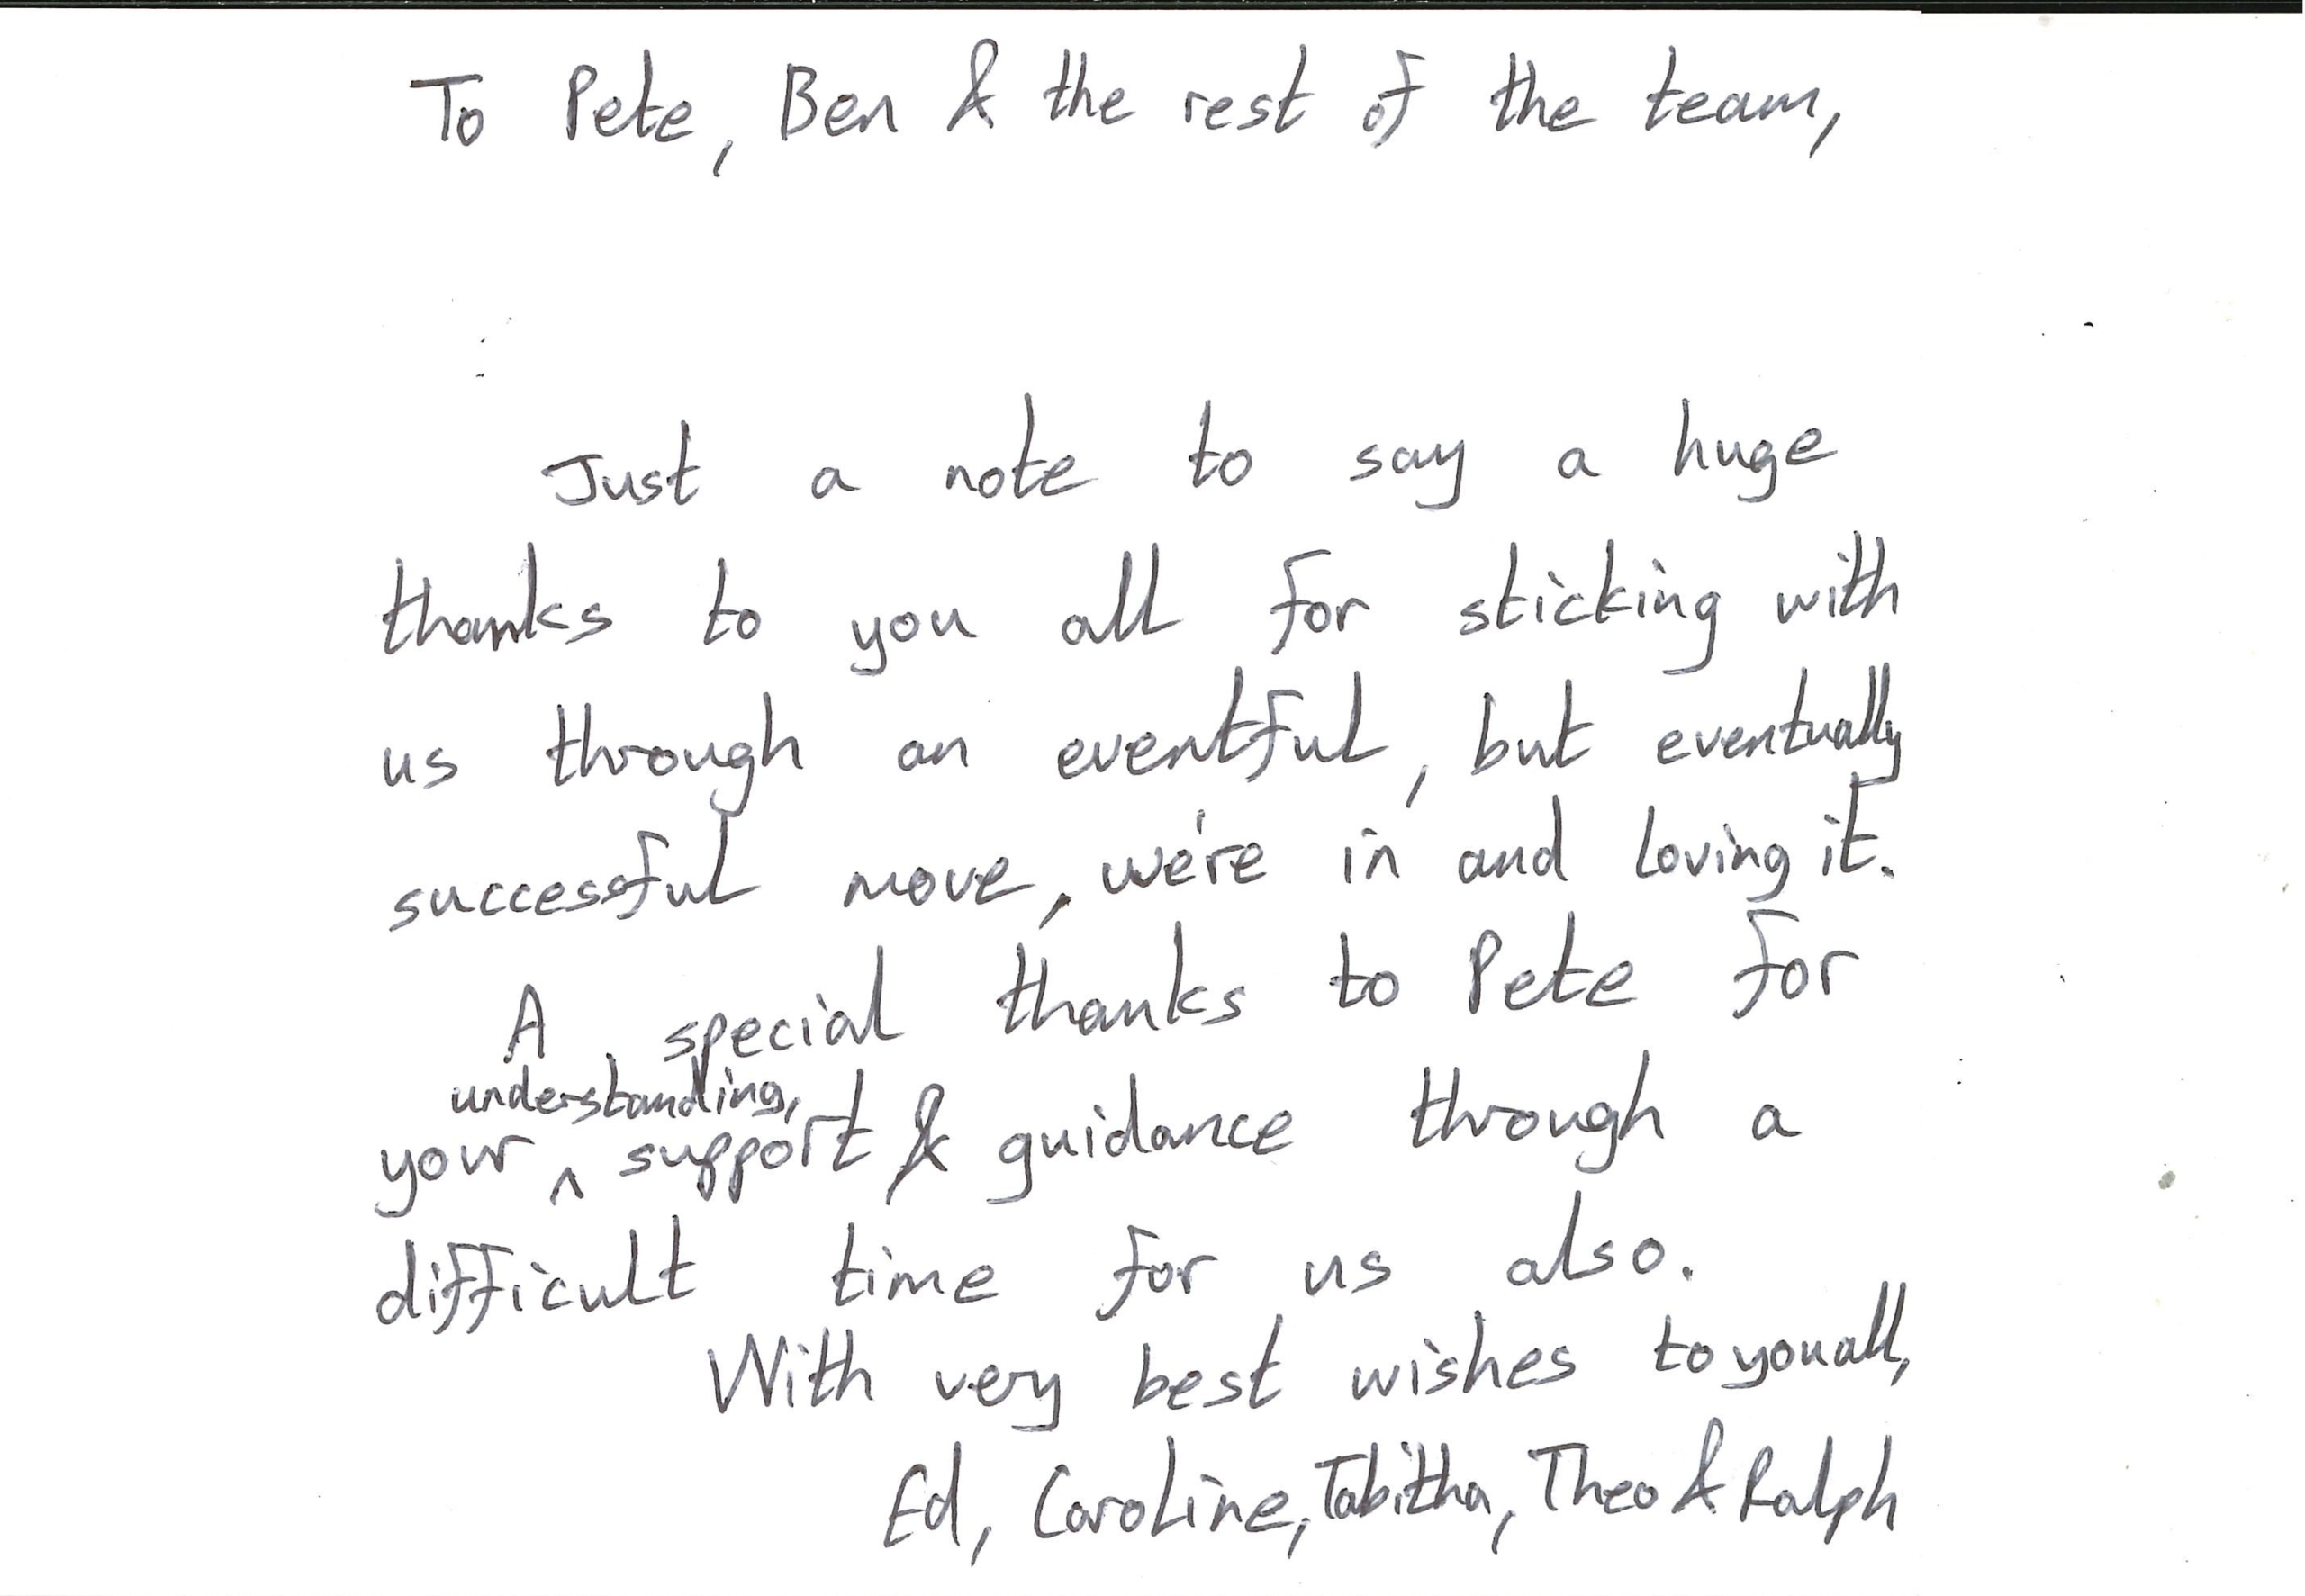 To Pete, Ben & the rest of the team,
Just a note to say a huge
thanks to you all for sticking with
us through an eventful, but eventually
successful move, we're in and loving it.
A special thanks to Pete for
understanding,
your ^ support & guidance through a
difficult time for us also.
With very best wishes to you all,
Ed, Caroline, Tabitha, Theo & Ralph